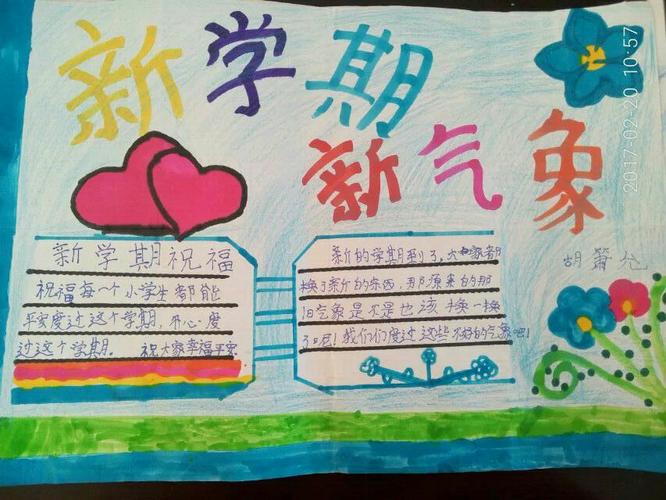 新学期
新气象
2017-02-20 10:57
新学期祝福
祝福每一个小学生都能
平安度过这个学期，开心度
过这个学期。 祝大家幸福平安
新的学期到了，大家都
换了新的东西，那原来的那
旧气象是不是也该换一换
了呢！我们们度过这些不好的气象吧！
胡箫允